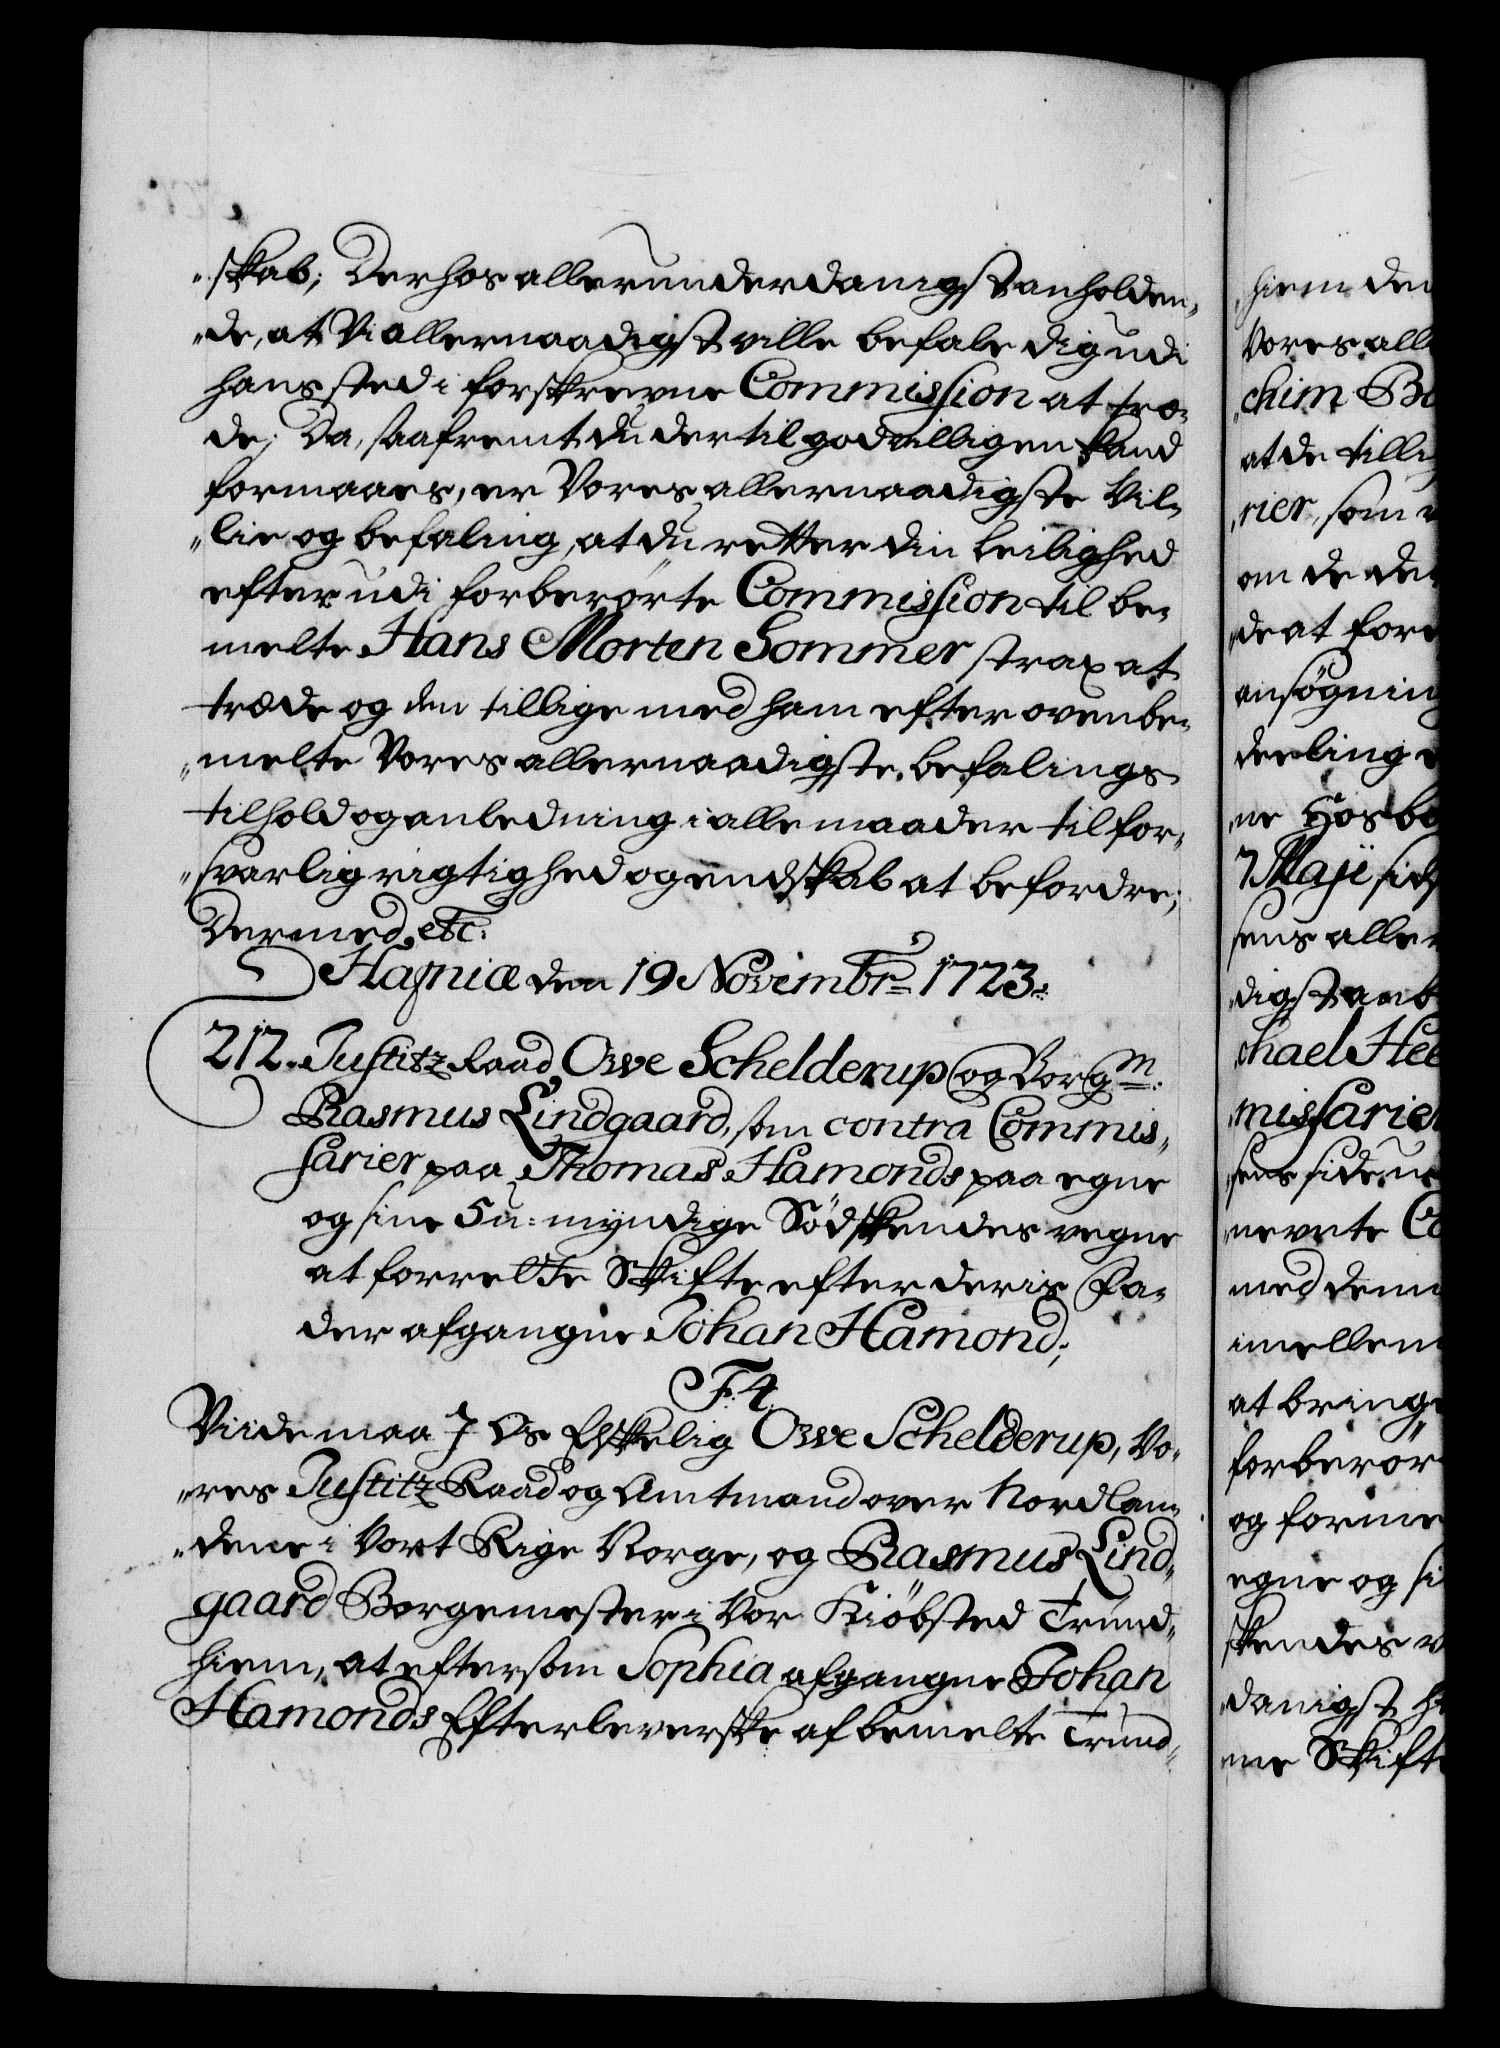 „skab; Derhos allerunderdanigst anholden„
„de, at Vi allernaadigst ville befale dig udi
hans sted i forskrevne Commission at træ„
de; Da, saafremt du dertil godvilligen kand
formaaes, er Vores allernaadigste Vil„
„lie og befaling, at du retter din leilighed
efter udi forberørte Commission til be„
melte Hans Morten Sommer strax at
træde og den tillige med ham efter ovenbe„
„melte Vores allernaadigste befalings
tilhold og anledning i alle maader til for„
„svarlig rigtighed og endskab at befordre;
Dermed etc:
Hafniæ den 19 Novembr: 1723.
212. Justitz Raad Owe Schelderup og Borgm:
Rasmus Lindgaard, som contra Commis„
sarier paa Thomas Hamonds paa egne
og sine 5 u:myndige Södskendes vegne
at forrette Skifte efter deris Fa„
der afgangne Johan Hamond;
F. 4.
Vi ide maa J Os Elskelig Owe Schelderup, Vo„
„res Justitz Raad og Amtmand over Nordlan„
„dene i Vort Rige Norge, og Rasmus Lind„
gaard Borgemester i Vor Kiöbsted Trund„
hiem, at eftersom Sophia afgangne Johan
Hamonds Efterleverske af bemelte Trund„
„hiem den
Vores alle
„chim B
at de tilli
„rier, som
om de de
„de at for
ansøgning
deeling
„ne Hos bo
7 Maji sids
sens aller
„digst anb
chael Hee
„missarier
„sens side u
„nevnte Co
med dem
imellem
at bringe
forberør
og forme
egne og si
skendes v
„danigst h
„ne Skifte